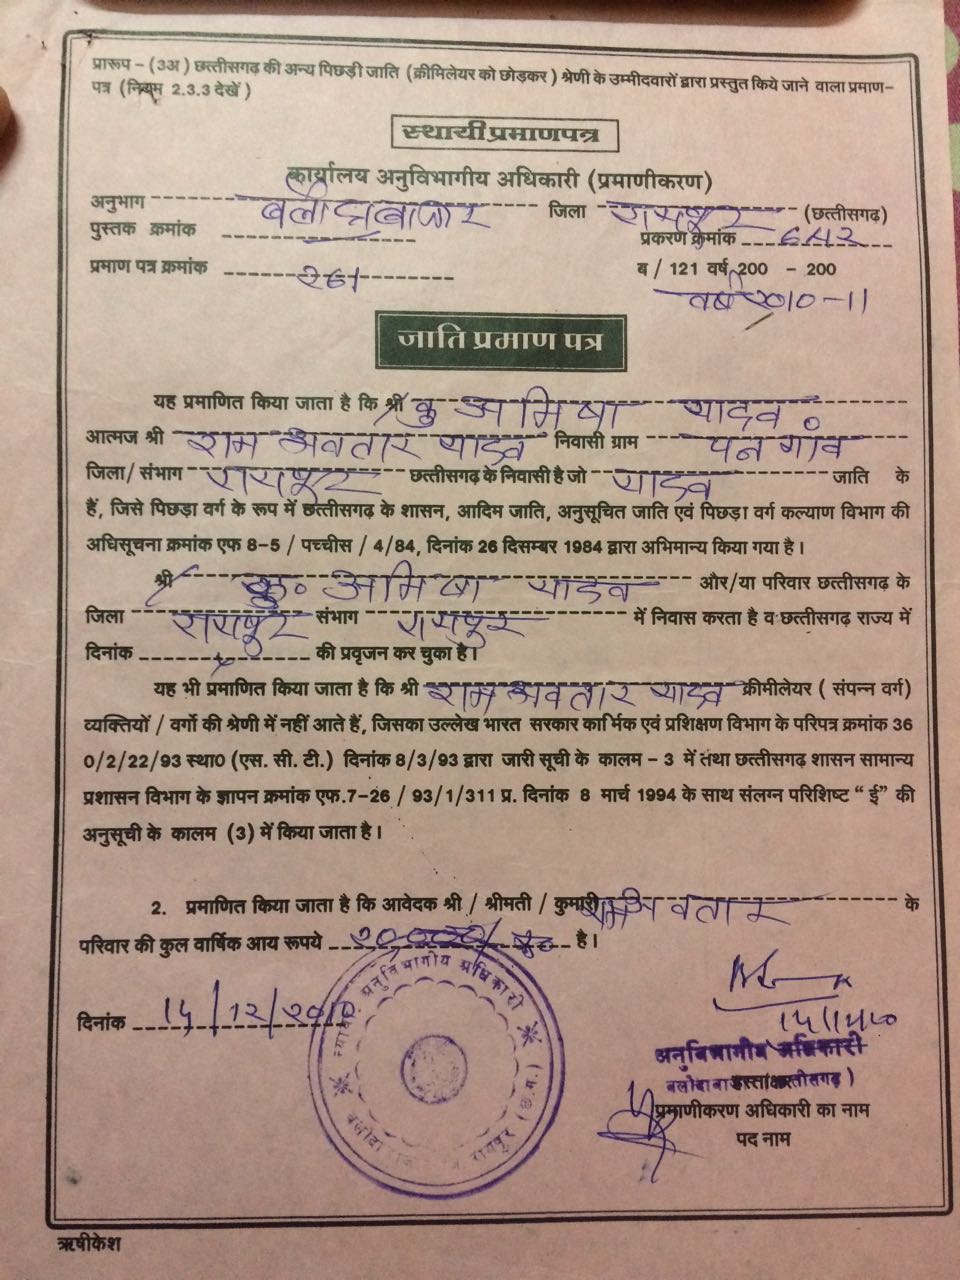 प्रारूप - (3अ) छत्तीसगढ़ की अन्य पिछड़ी जाति (क्रीमिलेयर को छोड़कर) श्रेणी के उम्मीदवारों द्वारा प्रस्तुत किये जाने वाला प्रमाण-
पत्र (नियम 2.3.3 देखें)
स्थायी प्रमाणपत्र
कार्यालय अनुविभागीय अधिकारी (प्रमाणीकरण)
अनुभाग बलौदाबाजार जिला रायपुर (छत्तीसगढ़)
पुस्तक क्रमांक प्रकरण क्रमांक
प्रमाण पत्र क्रमांक 261 ब / 121 वर्ष 200 - 200
वर्ष 2010-11
जाति प्रमाण पत्र
यह प्रमाणित किया जाता है कि श्री कु अमिषा यादव
आत्मज श्री राम अवतार यादव निवासी ग्राम पनगांव
जिला/ संभाग रायपुर छत्तीसगढ़ के निवासी है जो यादव जाति के
हैं, जिसे पिछड़ा वर्ग के रूप में छत्तीसगढ़ के शासन, आदिम जाति, अनुसूचित जाति एवं पिछड़ा वर्ग कल्याण विभाग की
अधिसूचना क्रमांक एफ 8-5 / पच्चीस / 4/84, दिनांक 26 दिसम्बर 1984 द्वारा अभिमान्य किया गया है।
श्री कु. अमिषा यादव और/या परिवार छत्तीसगढ़ के
जिला रायपुर संभाग रायपुर में निवास करता है व छत्तीसगढ़ राज्य में
दिनांक की प्रवृजन कर चुका है।
यह भी प्रमाणित किया जाता है कि श्री राम अवतार यादव क्रीमीलेयर (संपन्न वर्ग)
व्यक्तियों / वर्गो की श्रेणी में नहीं आते हैं, जिसका उल्लेख भारत सरकार कार्मिक एवं प्रशिक्षण विभाग के परिपत्र क्रमांक 36
0/2/22/93 स्था0 (एस. सी. टी.) दिनांक 8/3/93 द्वारा जारी सूची के कालम - 3 में तथा छत्तीसगढ़ शासन सामान्य
प्रशासन विभाग के ज्ञापन क्रमांक एफ.7-26 / 93/1/311 प्र. दिनांक 8 मार्च 1994 के साथ संलग्न परिशिष्ट “ ई” की
अनुसूची के कालम (3) में किया जाता है।
2. प्रमाणित किया जाता है कि आवेदक श्री / श्रीमती / कुमारी राम अवतार के
परिवार की कुल वार्षिक आय रूपये है।
दिनांक 14/12/2010
अनुविभागीय अधिकारी
हस्ताक्षर
प्रमाणीकरण अधिकारी का नाम
पद नाम
ऋषीकेश